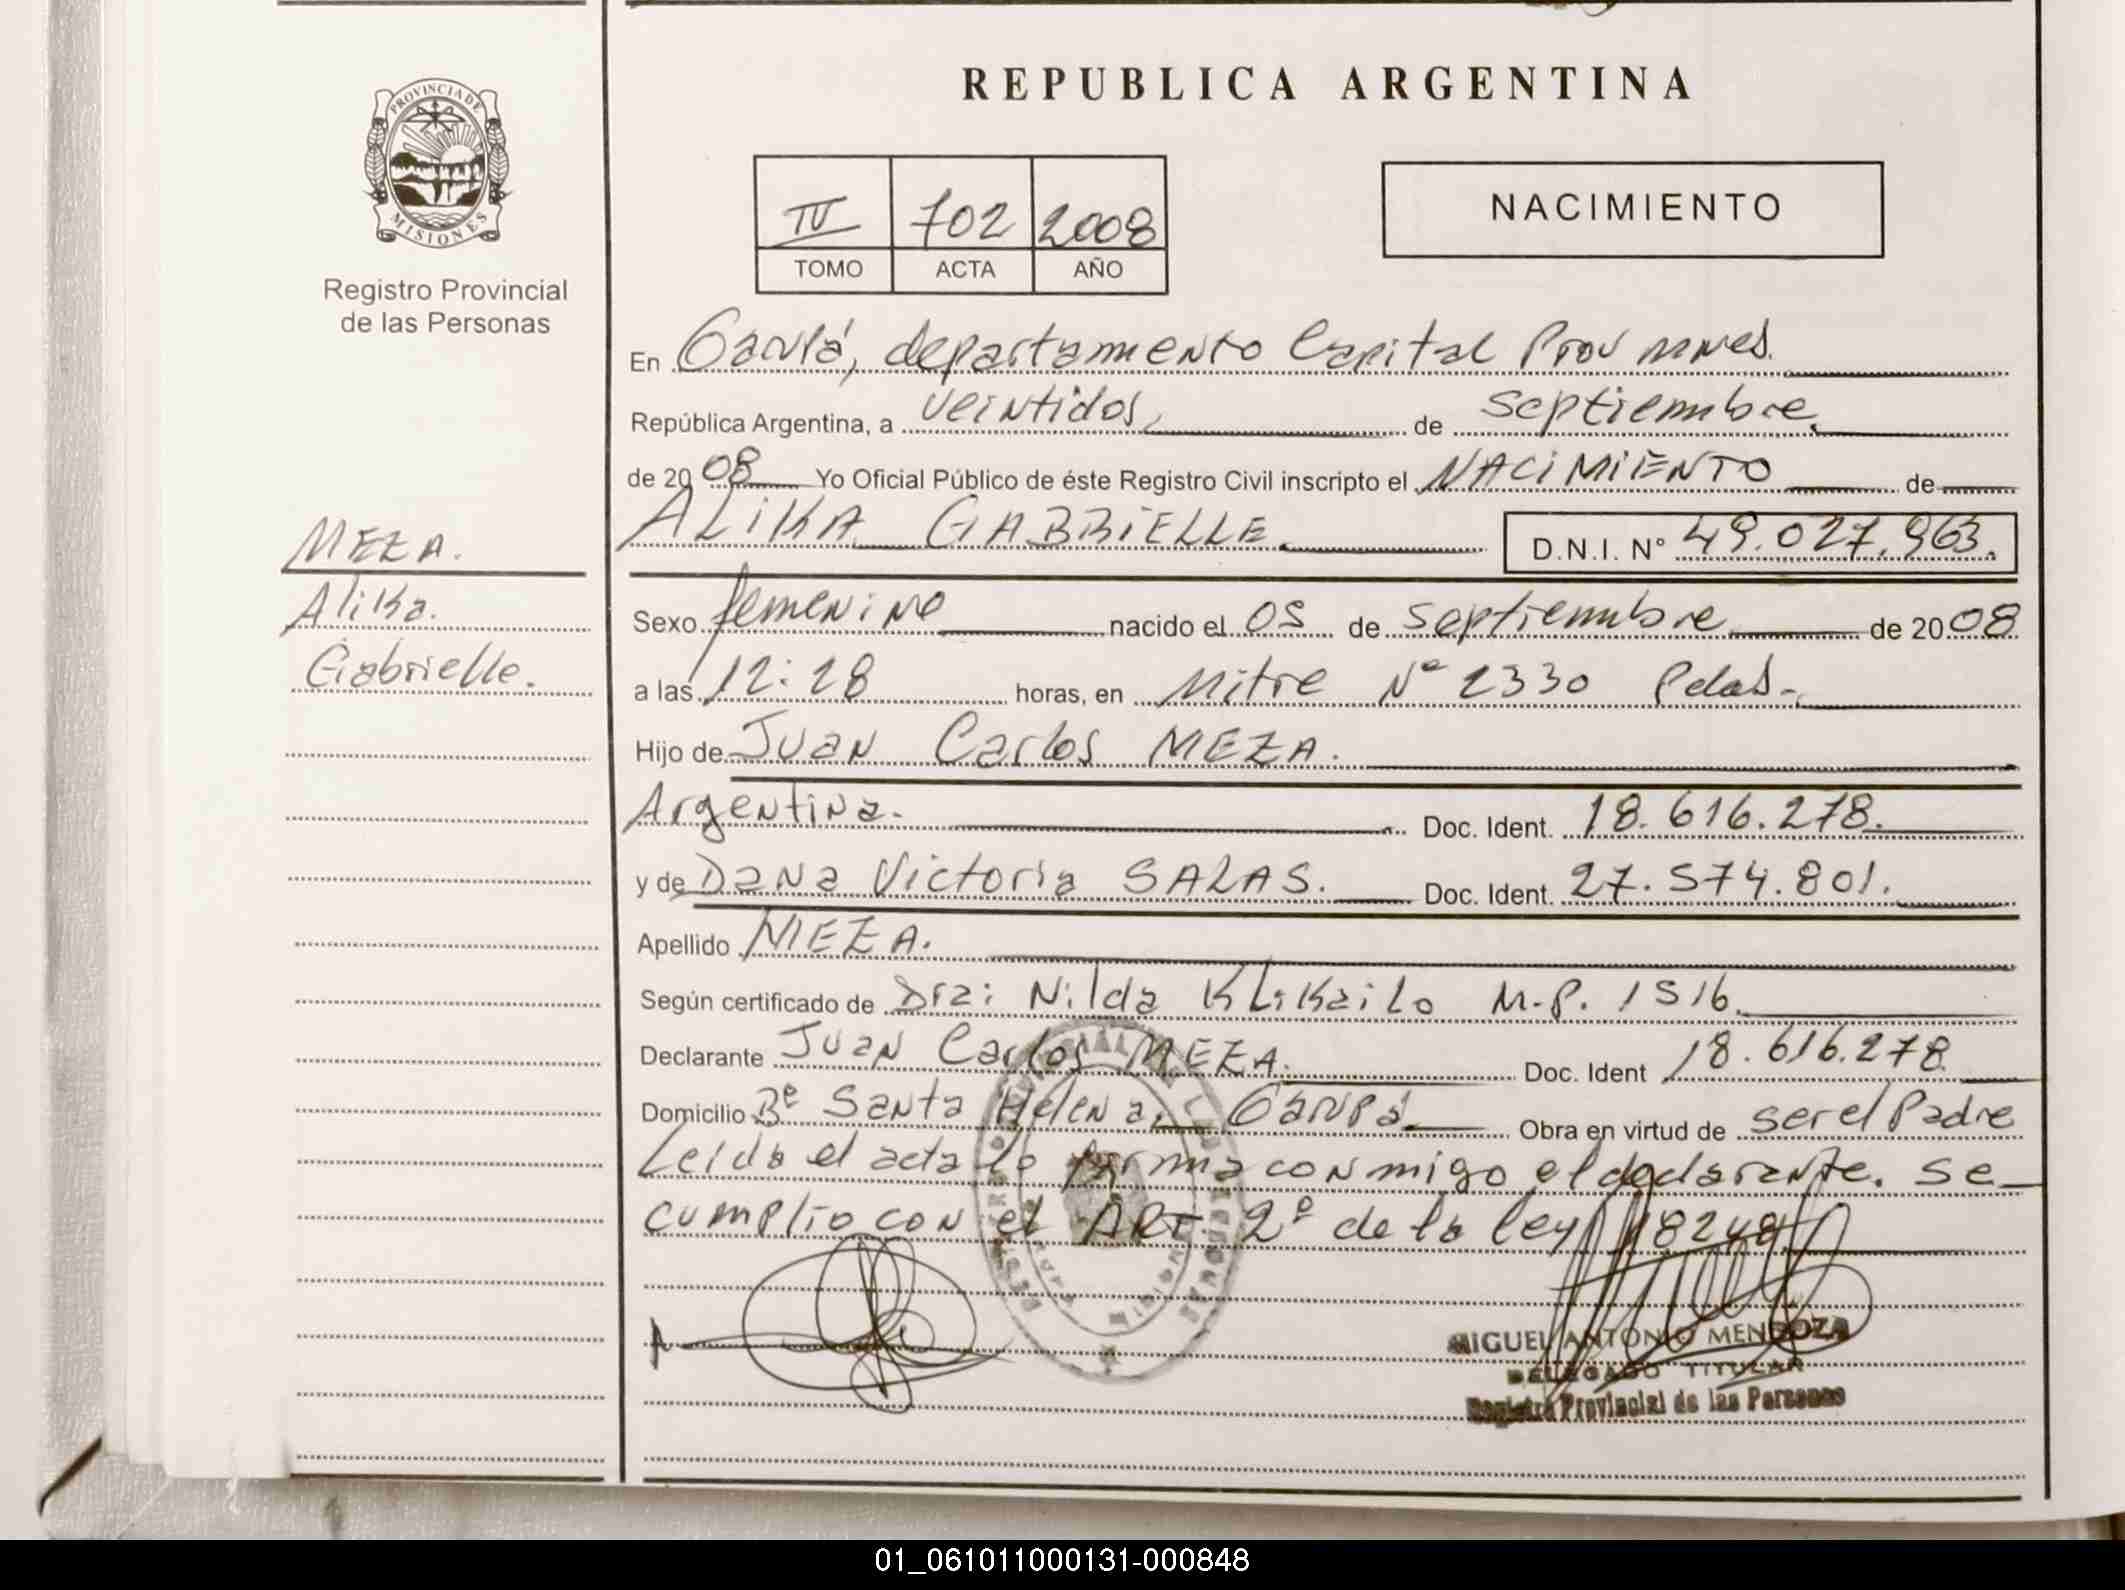 PROVINCIA DE
MISIONES
Registro Provincial
de las Personas
MEZA.
Alika.
Gabrielle.
REPUBLICA ARGENTINA
IV 702 2008
TOMO ACTA AÑO
NACIMIENTO
En Garupá, departamento Capital Prov mnes.
República Argentina, a veintidos, de septiembre.
de 2008 Yo Oficial Público de éste Registro Civil inscripto el NACIMIENTO de
ALIKA GABRIELLE. D.N.I. N° 49.027.963.
Sexo femenino nacido el 05 de septiembre de 2008
a las 12:28 horas, en Mitre N° 2330 Pdas.
Hijo de Juan Carlos MEZA.
Argentina. Doc. Ident. 18.616.278.
y de Dana Victoria SALAS. Doc. Ident. 27.574.801.
Apellido MEZA.
Según certificado de Dra: Nilda Klikailo M.P. 1516
Declarante Juan Carlos MEZA. Doc. Ident 18.616.278
Domicilio Bº Santa Helena, Garupá Obra en virtud de ser el Padre
Leida el acta la firma conmigo el declarante. Se
cumplio con el ART. 2º de la ley 18248
MIGUEL ANTONIO MENDOZA
DELEGADO TITULAR
Registro Provincial de las Personas
01_061011000131-000848